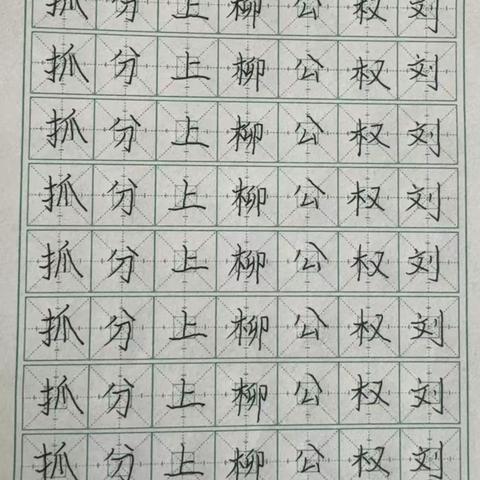 抓分上柳公权刘
抓分上柳公权刘
抓分上柳公权刘
抓分上柳公权刘
抓分上柳公权刘
抓分上柳公权刘
抓分上柳公权刘
抓分上柳公权刘